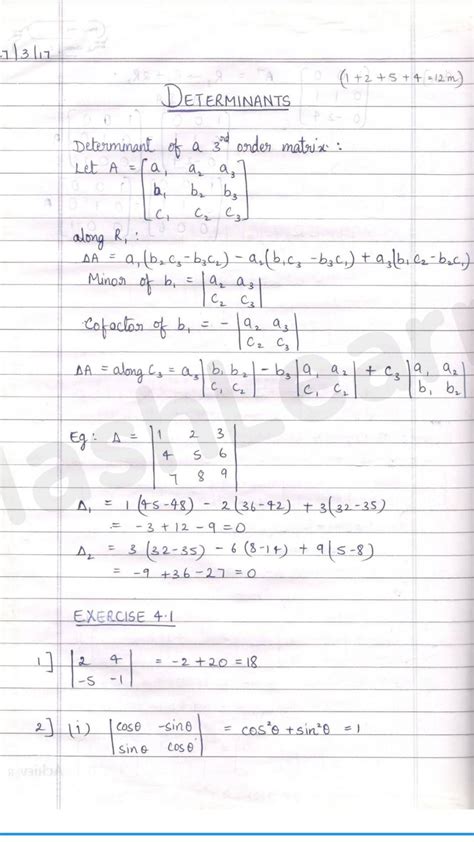 7/3/17
(1+2+5+4=12m)
DETERMINANTS
Determinant of a 3rd order matrix :
Let A = [a₁ a₂ a₃
b₁ b₂ b₃
c₁ c₂ c₃]
along R₁ :
ΔA = a₁(b₂c₃-b₃c₂) - a₂(b₁c₃-b₃c₁) + a₃(b₁c₂-b₂c₁)
Minor of b₁ = |a₂ a₃
c₂ c₃|
Cofactor of b₁ = - |a₂ a₃
c₂ c₃|
ΔA = along C₃ = a₃ |b₁ b₂ - b₃ |a₁ a₂ + c₃ |a₁ a₂
c₁ c₂| c₁ c₂| b₁ b₂|
Eg : Δ = |1 2 3
4 5 6
7 8 9|
Δ₁ = 1(45-48) - 2(36-42) + 3(32-35)
= -3+12-9=0
Δ₂ = 3(32-35) - 6(8-14) + 9(5-8)
= -9+36-27=0
EXERCISE 4.1
1] |2 4 = -2+20=18
-5 -1|
2] (i) |cosθ -sinθ = cos²θ+sin²θ = 1
sinθ cosθ|